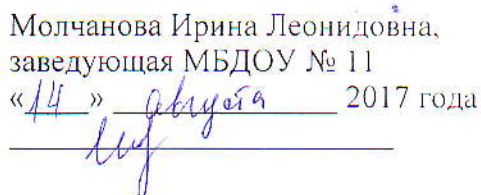 Молчанова Ирина Леонидовна,
заведующая МБДОУ № 11
«14» августа 2017 года